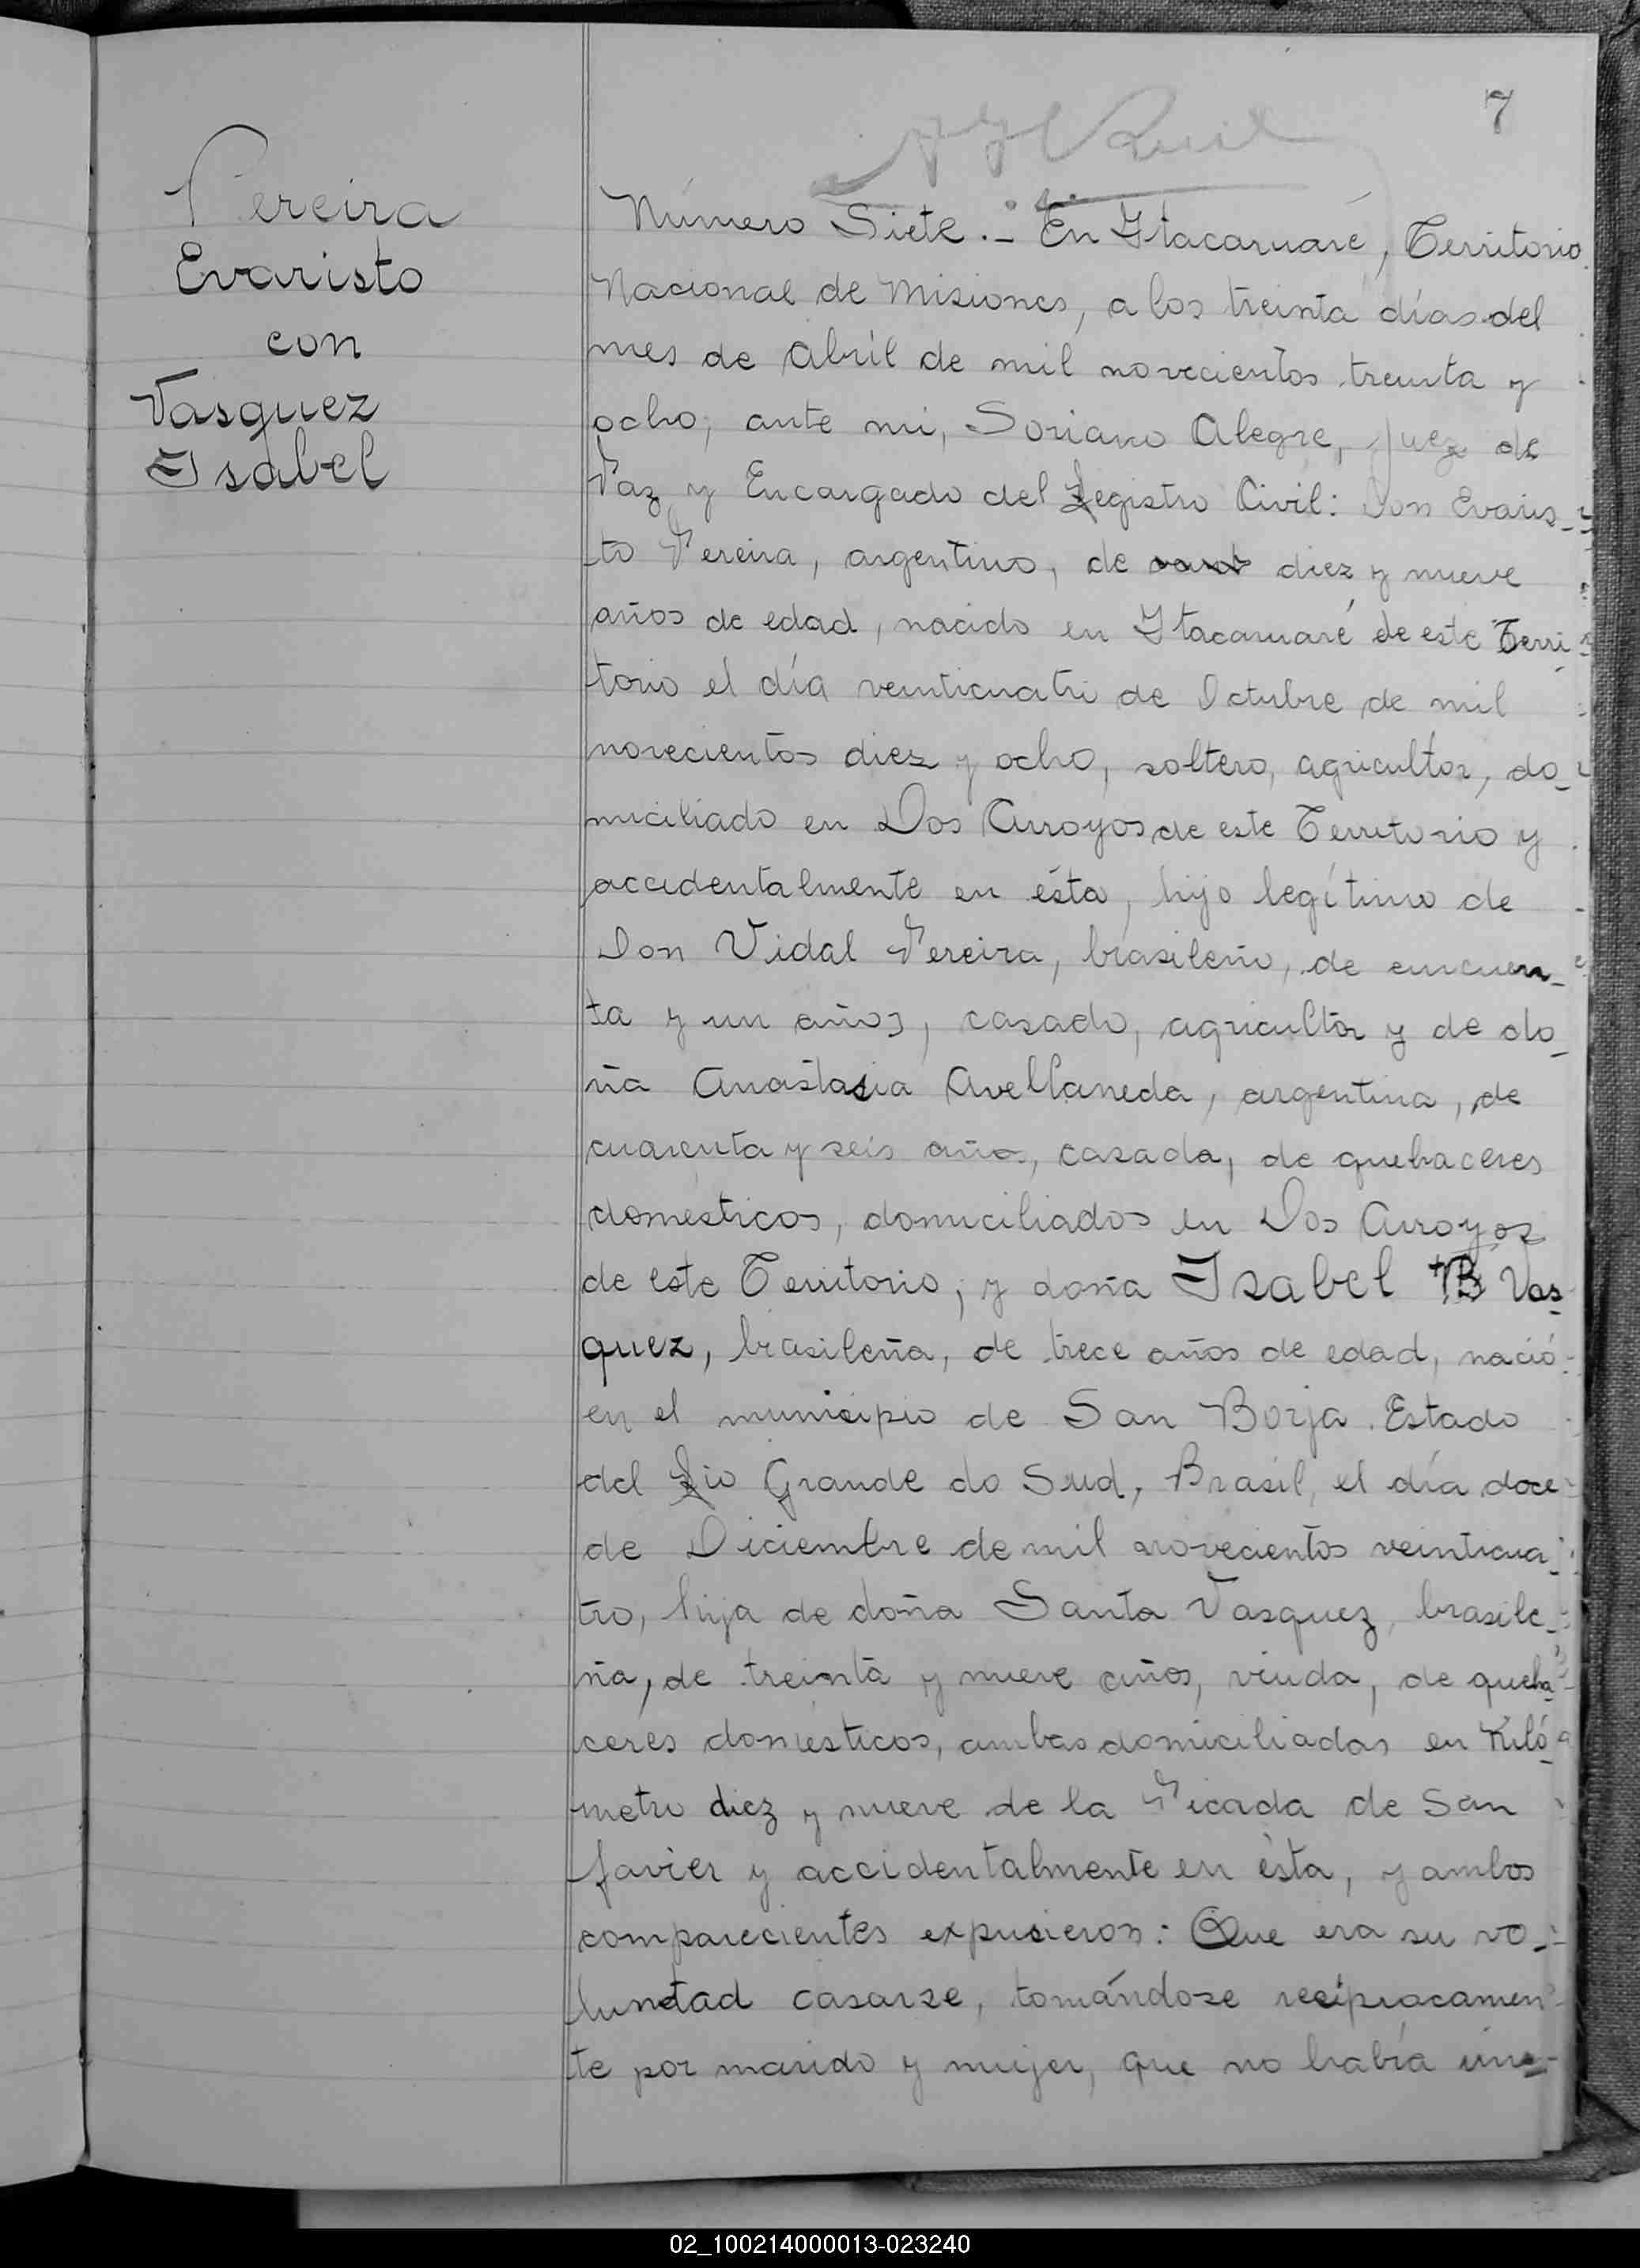 7
Pereira
Evaristo
con
Vasquez
Isabel
Número Siete.- En Itacaruaré, Territorio
Nacional de Misiones, a los treinta días del
mes de Abril de mil novecientos treinta y
ocho, ante mi, Soriano Alegre, Juez de
Paz y Encargado del Registro Civil: Don Evaris-
to Pereira, argentino, de diez y nueve
años de edad, nacido en Itacaruaré de este Terri-
torio el día veinticuatro de Octubre de mil
novecientos diez y ocho, soltero, agricultor, do-
miciliado en Dos Arroyos de este Territorio y
accidentalmente en ésta, hijo legítimo de
Don Vidal Pereira, brasileño, de cincuen-
ta y un años, casado, agricultor y de do-
ña Anastasia Avellaneda, argentina, de
cuarenta y seis años, casada, de quehaceres
domésticos, domiciliados en Dos Arroyos
de este Territorio; y doña Isabel Vas-
quez, brasileña, de trece años de edad, nació
en el municipio de San Borja. Estado
del Rio Grande do Sud, Brasil, el día doce
de Diciembre de mil novecientos veinticua-
tro, hija de doña Santa Vasquez, brasile-
ña, de treinta y nueve años, viuda, de queha-
ceres domésticos, ambas domiciliadas en Kiló-
metro diez y nueve de la Picada de San
Javier y accidentalmente en ésta, y ambos
comparecientes expusieron: Que era su vo-
luntad casarse, tomándose recíprocamen-
te por marido y mujer, que no había im-
02_100214000013-023240